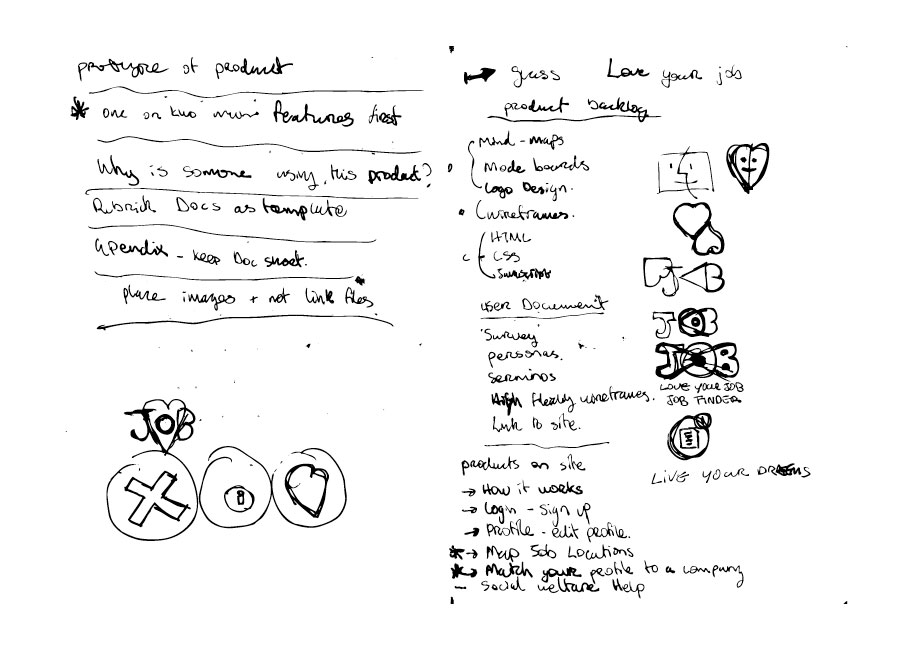 prototype of product
* one or two main features first
Why is someone using this product?
Rubrick Docs as template
apendix - keep Doc short.
place images + not link files
JOB
i
→ guess Love your job
product backlog
Mind - maps
Mode boards
Logo Design.
Wireframes.
HTML
CSS
JavaScript
user Document
Survey
personas.
Serminos
High flexily wireframes.
Link to site.
JOB
JOB
LOVE YOUR JOB
JOB FINDER
LIVE YOUR DREAMS
products on site
→ How it works
→ Login - Sign up
→ Profile - edit profile.
*→ Map Job Locations
*→ Match your profile to a company
- Social welfare Help